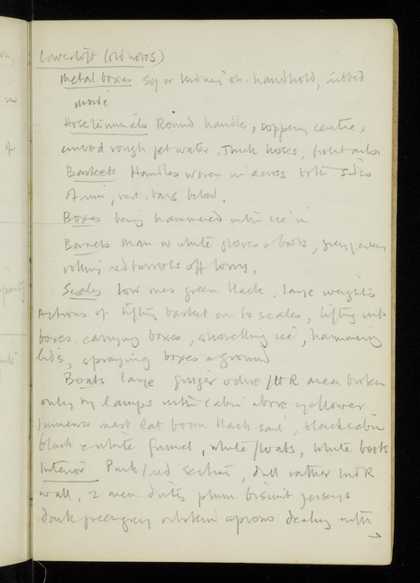 Lowestoft (old notes)
Metal boxes sq or kidney sh. handhold,
inside
Round handle, centre,
rough jet water. Thick hoses,
Baskets Handles woven in across both sides
of rim, bars below.
Boxes being hammered with ice in
Barrels Man in white gloves & boots,
rolling red barrels off lorry.
Scales Low ones green black, large weights
Actions of lifting basket on to scales, lifting
boxes, carrying boxes, shovelling ice, hammering
lids, spraying boxes & ground
Boats large ginger ochre / area broken
only by lamps with cabin above yellower,
immense mast black sail, black cabin
black & white funnel, white floats, white boots
Interior Pink/red section, dull rather
wall, 2 men dirty plum biscuit jerseys
dark green grey oilskin aprons dealing with